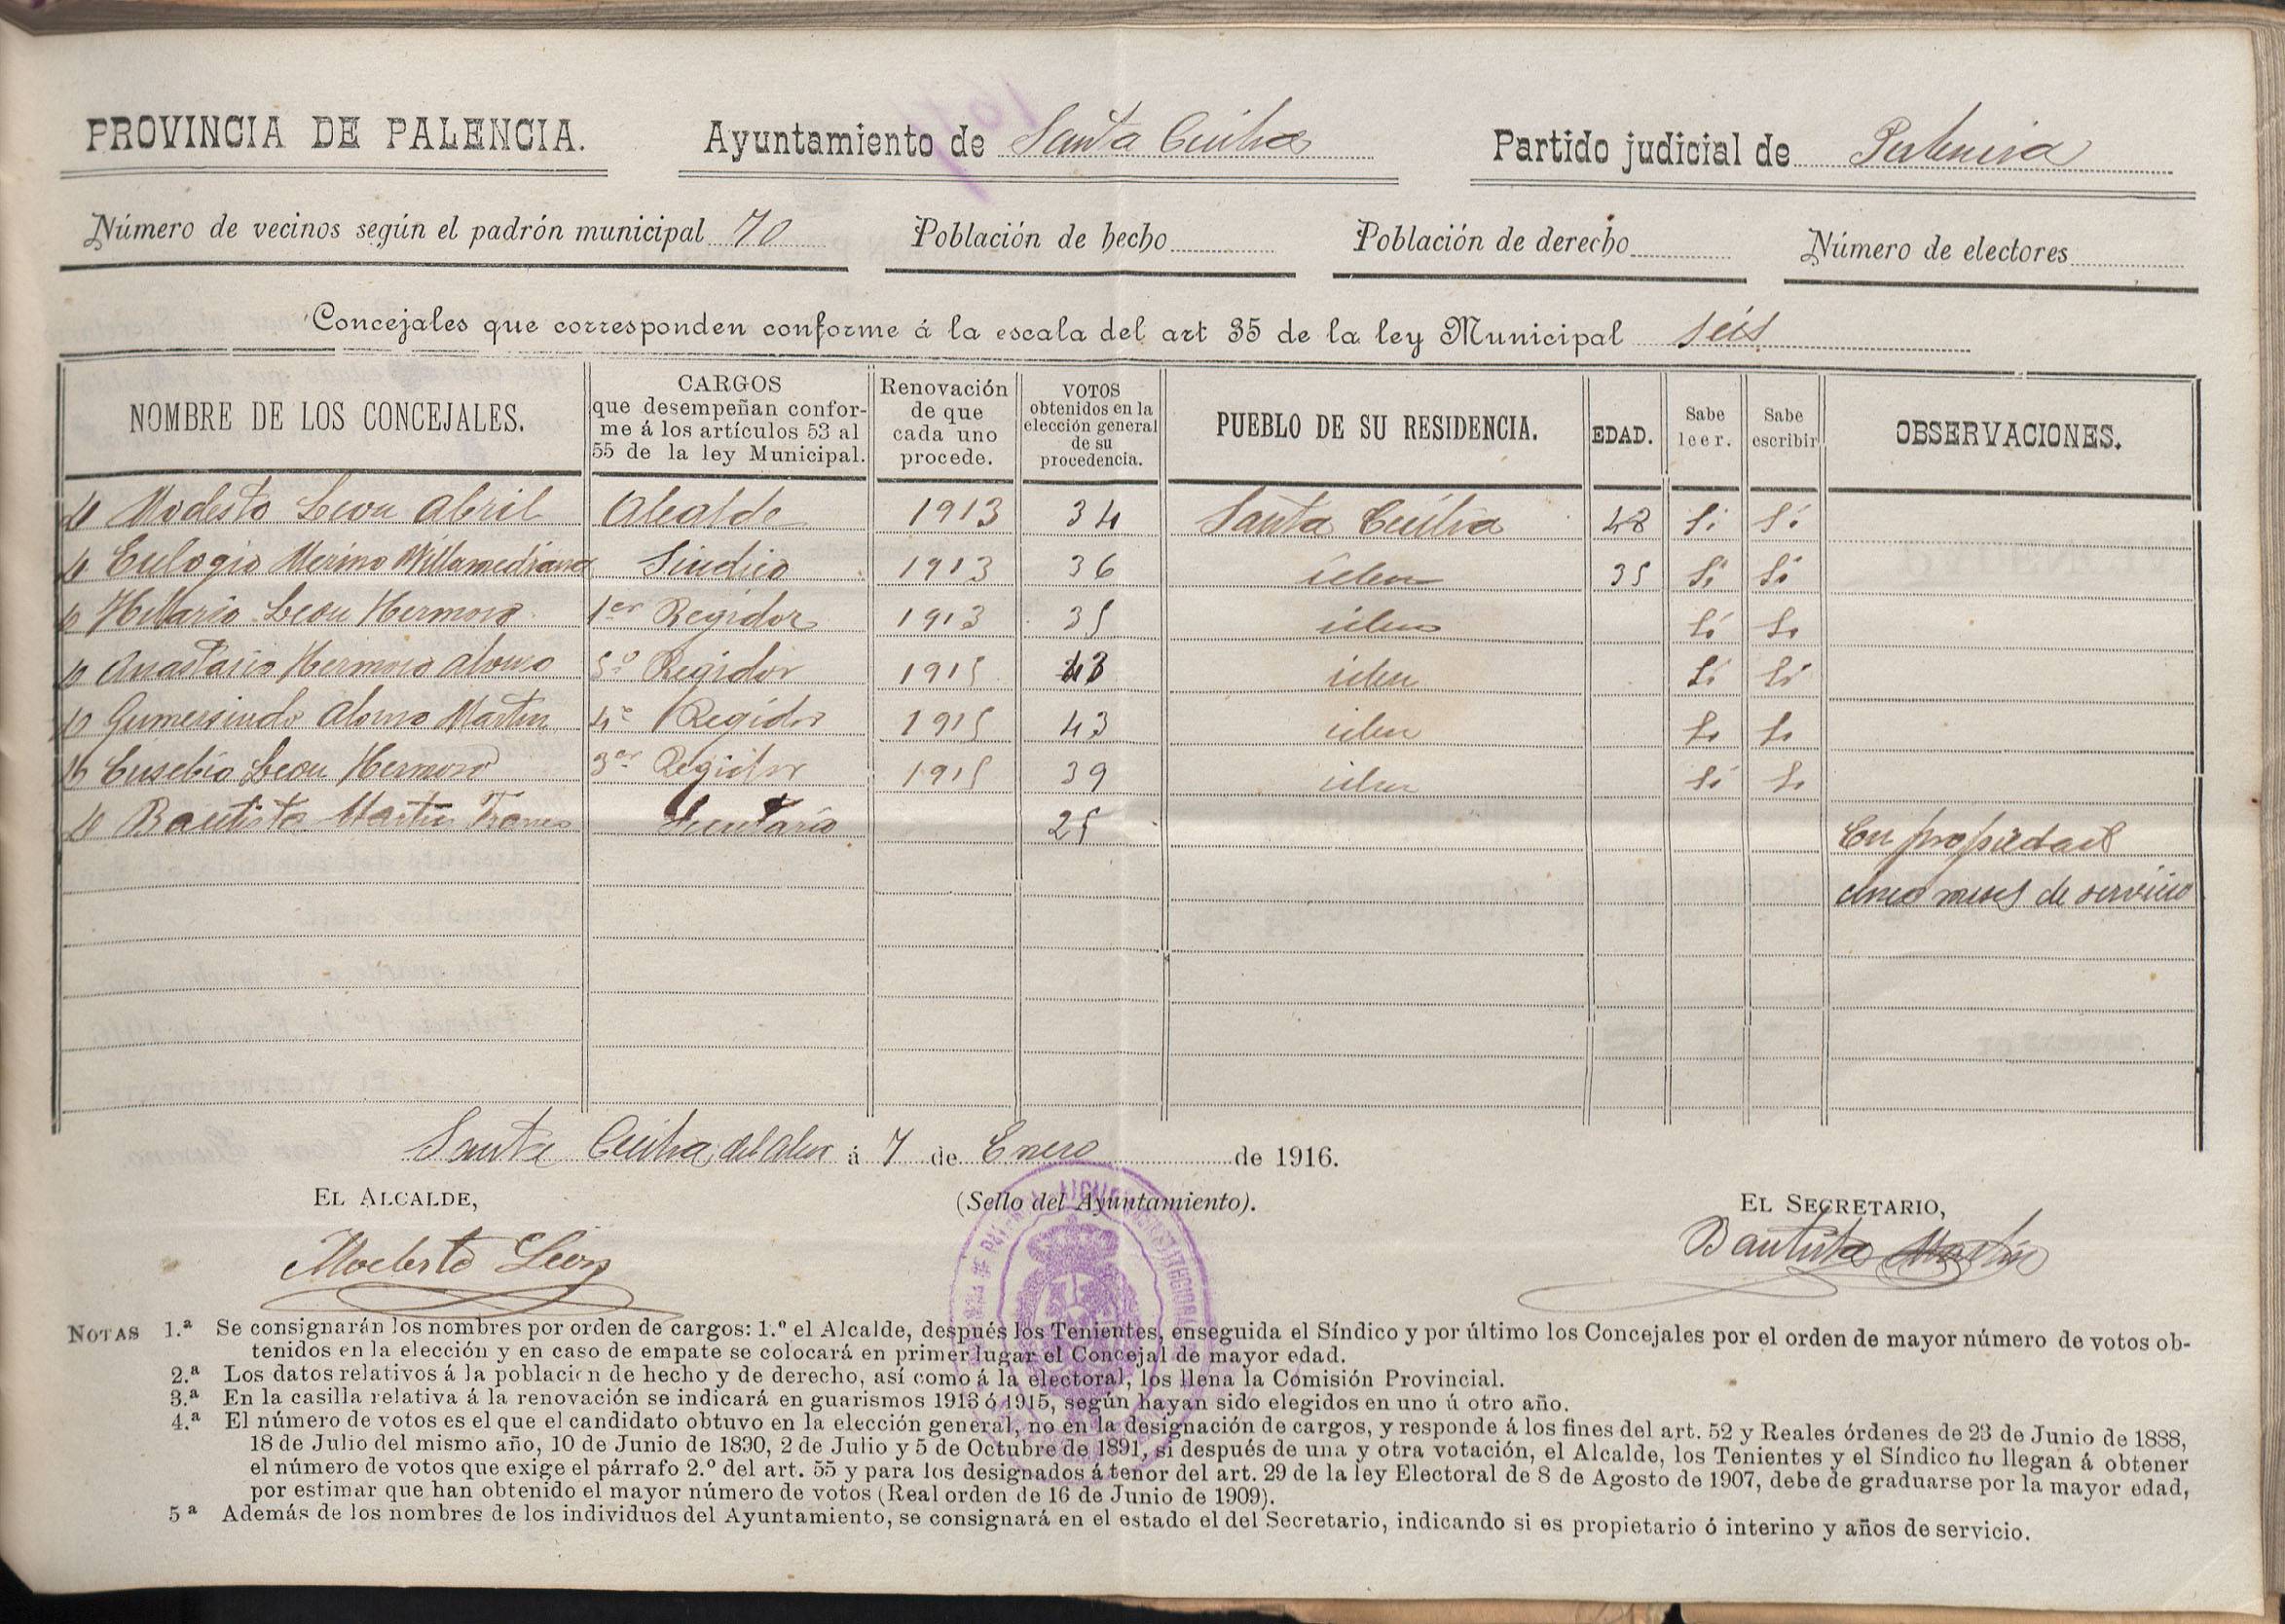 PROVINCIA DE PALENCIA. Ayuntamiento de Santa Cecilia Partido judicial de Palencia
Número de vecinos según el padrón municipal 70 Población de hecho Población de derecho Número de electores
Concejales que corresponden conforme á la escala del art 35 de la ley Municipal seis
NOMBRE DE LOS CONCEJALES. CARGOS que desempeñan confor-me á los artículos 53 al 55 de la ley Municipal. Renovación de que cada uno procede. VOTOS obtenidos en la elección general de su procedencia. PUEBLO DE SU RESIDENCIA. EDAD. Sabe leer. Sabe escribir OBSERVACIONES.
D Modesto Leon Abril Alcalde 1913 34 Santa Cecilia 48 Si Si
D Eulogio Merino Villamediana Sindico 1913 36 idem 35 Si Si
D Hilario Leon Hermoso 1er Regidor 1913 35 idem Si Si
D Anastasio Hermoso Alonso 5º Regidor 1915 43 idem Si Si
D Gumersindo Alonso Martin 4º Regidor 1915 43 idem Si Si
D Eusebio Leon Hermoso 3er Regidor 1915 39 idem Si Si
D Bautista Martin Secretario 25 En propiedad
cinco meses de servicio
Santa Cecilia del Alcor á 7 de Enero de 1916.
EL ALCALDE, (Sello del Ayuntamiento). EL SECRETARIO,
Modesto Leon Bautista Martin
NOTAS 1.ª Se consignarán los nombres por orden de cargos: 1.º el Alcalde, después los Tenientes, enseguida el Síndico y por último los Concejales por el orden de mayor número de votos ob-
tenidos en la elección y en caso de empate se colocará en primer lugar el Concejal de mayor edad.
2.ª Los datos relativos á la población de hecho y de derecho, así como á la electoral, los llena la Comisión Provincial.
3.ª En la casilla relativa á la renovación se indicará en guarismos 1913 ó 1915, según hayan sido elegidos en uno ú otro año.
4.ª El número de votos es el que el candidato obtuvo en la elección general, no en la designación de cargos, y responde á los fines del art. 52 y Reales órdenes de 23 de Junio de 1888,
18 de Julio del mismo año, 10 de Junio de 1890, 2 de Julio y 5 de Octubre de 1891, si después de una y otra votación, el Alcalde, los Tenientes y el Síndico no llegan á obtener
el número de votos que exige el párrafo 2.º del art. 55 y para los designados á tenor del art. 29 de la ley Electoral de 8 de Agosto de 1907, debe de graduarse por la mayor edad,
por estimar que han obtenido el mayor número de votos (Real orden de 16 de Junio de 1909).
5ª Además de los nombres de los individuos del Ayuntamiento, se consignará en el estado el del Secretario, indicando si es propietario ó interino y años de servicio.